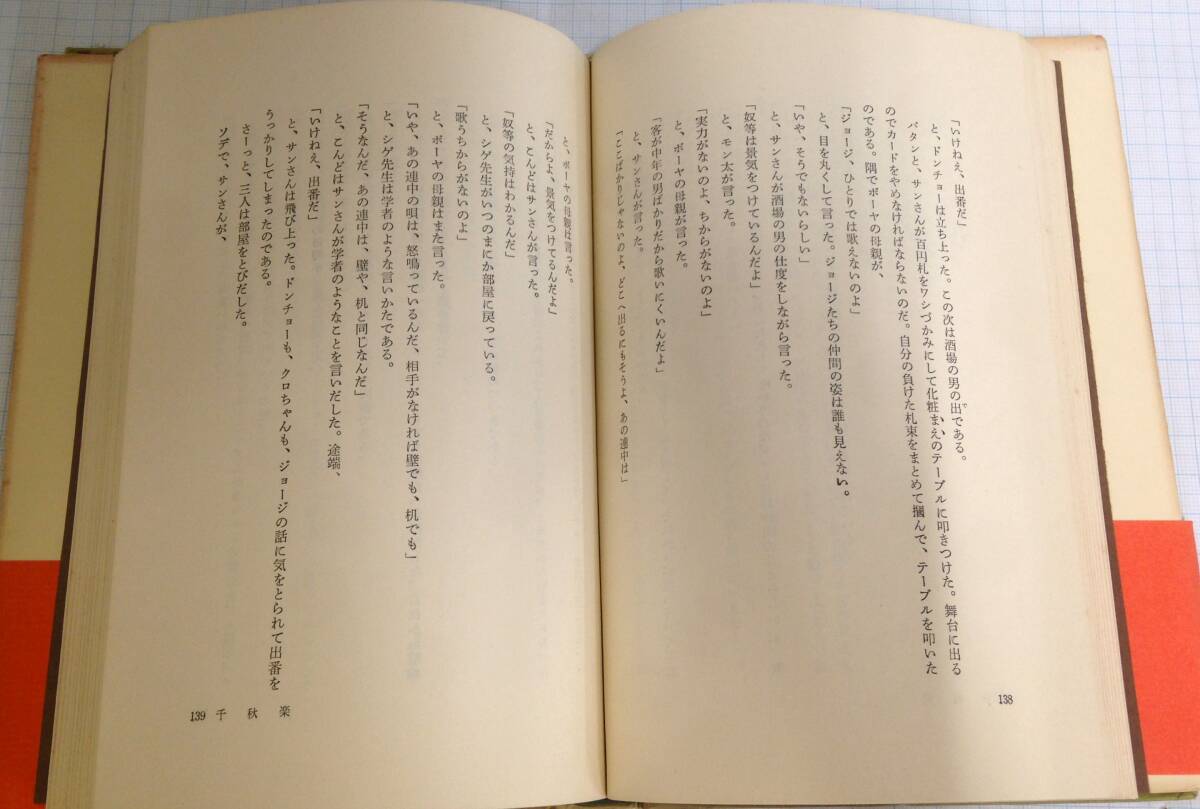 「いけねえ、出番だ」
と、ドンチョーは立ち上った。この次は酒場の男の出である。
バタンと、サンさんが百円札をワシづかみにして化粧まえのテーブルに叩きつけた。舞台に出る
のでカードをやめなければならないのだ。自分の負けた札束をまとめて摑んで、テーブルを叩いた
のである。隅でボーヤの母親が、
「ジョージ、ひとりでは歌えないのよ」
と、目を丸くして言った。ジョージたちの仲間の姿は誰も見えない。
「いや、そうでもないらしい」
と、サンさんが酒場の男の仕度をしながら言った。
「奴等は景気をつけているんだよ」
と、モン太が言った。
「実力がないのよ、ちからがないのよ」
と、ボーヤの母親が言った。
「客が中年の男ばかりだから歌いにくいんだよ」
と、サンさんが言った。
「ここばかりじゃないのよ、どこへ出るにもそうよ、あの連中は」
138
と、ボーヤの母親は言った。
「だからよ、景気をつけてるんだよ」
と、こんどはサンさんが言った。
「奴等の気持はわかるんだ」
と、シゲ先生がいつのまにか部屋に戻っている。
「歌うちからがないのよ」
と、ボーヤの母親はまた言った。
「いや、あの連中の唄は、怒鳴っているんだ、相手がなければ壁でも、机でも」
と、シゲ先生は学者のような言いかたである。
「そうなんだ、あの連中は、壁や、机と同じなんだ」
と、こんどはサンさんが学者のようなことを言いだした。途端、
「いけねえ、出番だ」
と、サンさんは飛び上った。ドンチョーも、クロちゃんも、ジョージの話に気をとられて出番を
うっかりしてしまったのである。
さーっと、三人は部屋をとびだした。
ソデで、サンさんが、
139 千秋楽